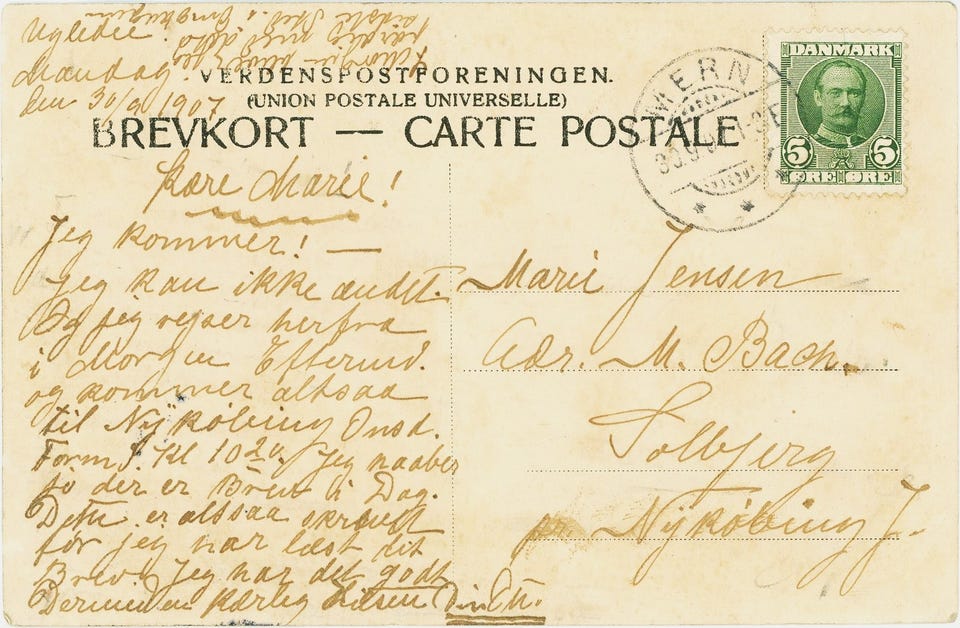 Ugledie.
Mandag.
den 30/9 1907
VERDENSPOSTFORENINGEN.
(UNION POSTALE UNIVERSELLE)
BREVKORT — CARTE POSTALE
DANMARK
5 5
ØRE ØRE
MERN
30.9.07
Kære Marie!
Jeg kommer! —
Jeg kan ikke andet.
Og jeg rejser herfra
i Morgen Efterm.
og kommer altsaa
til Nykøbing Onsd.
Form. Kl 1020. Jeg haaber
jo der er Brev i Dag.
Dette er altsaa skrevet
før jeg har læst dit
Brev. Jeg har det godt
Dermed en kærlig Hilsen Din
Marie Jensen
Adr. M. Bach.
Solbjerg
pr. Nykøbing J.